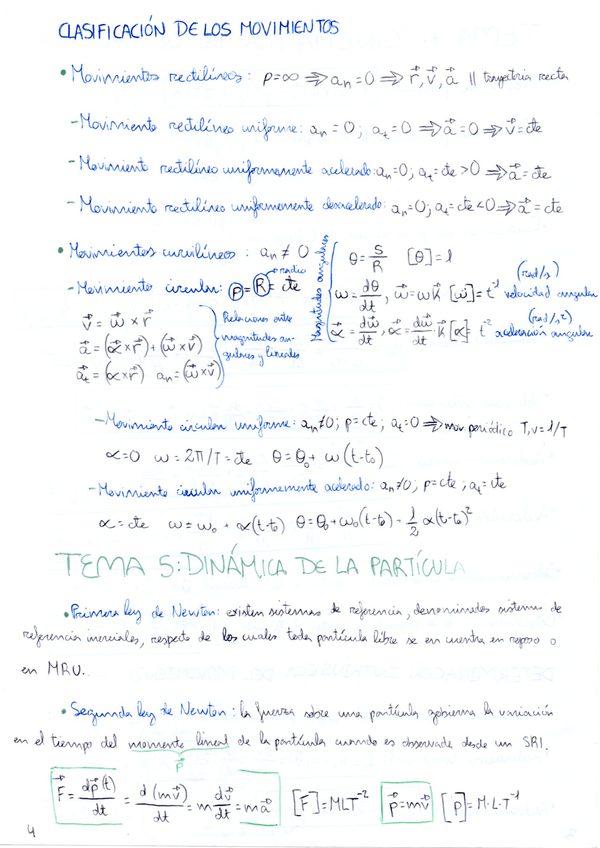 CLASIFICACIÓN DE LOS MOVIMIENTOS
• Movimientos rectilíneos: ρ=∞ ⇒ aₙ=0 ⇒ r⃗, v⃗, a⃗ || trayectoria recta
- Movimiento rectilíneo uniforme: aₙ = 0; aₜ = 0 ⇒ a⃗ = 0 ⇒ v⃗ = cte
- Movimiento rectilíneo uniformemente acelerado: aₙ=0; aₜ= cte >0 ⇒ a⃗ = cte
- Movimiento rectilíneo uniformemente desacelerado: aₙ=0; aₜ= cte <0 ⇒ a⃗ = cte
• Movimientos curvilíneos: aₙ ≠ 0
- Movimiento circular: ρ = R = cte
radio
Magnitudes angulares
θ = S/R [θ] = 1
ω = dθ/dt, ω⃗ = ωk⃗ [ω] = t⁻¹ velocidad angular (rad/s)
α⃗ = dω⃗/dt, α⃗ = dω/dt · k⃗ [α] = t⁻² aceleración angular (rad/s²)
v⃗ = ω⃗ × r⃗
a⃗ = (α⃗ × r⃗) + (ω⃗ × v⃗)
a⃗ₜ = (α⃗ × r⃗) aₙ = (ω⃗ × v⃗)
Relaciones entre
magnitudes an-
gulares y lineales
- Movimiento circular uniforme: aₙ≠0; ρ=cte; aₜ=0 ⇒ mov periódico T, ν=1/T
α=0 ω = 2π/T = cte θ = θ₀ + ω(t-t₀)
- Movimiento circular uniformemente acelerado: aₙ≠0; ρ=cte; aₜ=cte
α = cte ω = ω₀ + α(t-t₀) θ = θ₀+ω₀(t-t₀) + 1/2 α(t-t₀)²
TEMA 5: DINÁMICA DE LA PARTÍCULA
• Primera ley de Newton: existen sistemas de referencia, denominados sistemas de
referencia inerciales, respecto de los cuales toda partícula libre se encuentra en reposo o
en MRU.
• Segunda ley de Newton: la fuerza sobre una partícula gobierna la variación
en el tiempo del momento lineal de la partícula cuando es observada desde un SRI.
p⃗
F⃗ = dp⃗(t)/dt = d(mv⃗)/dt = m dv⃗/dt = ma⃗ [F] = MLT⁻² p⃗ = mv⃗ [p] = M·L·T⁻¹
4